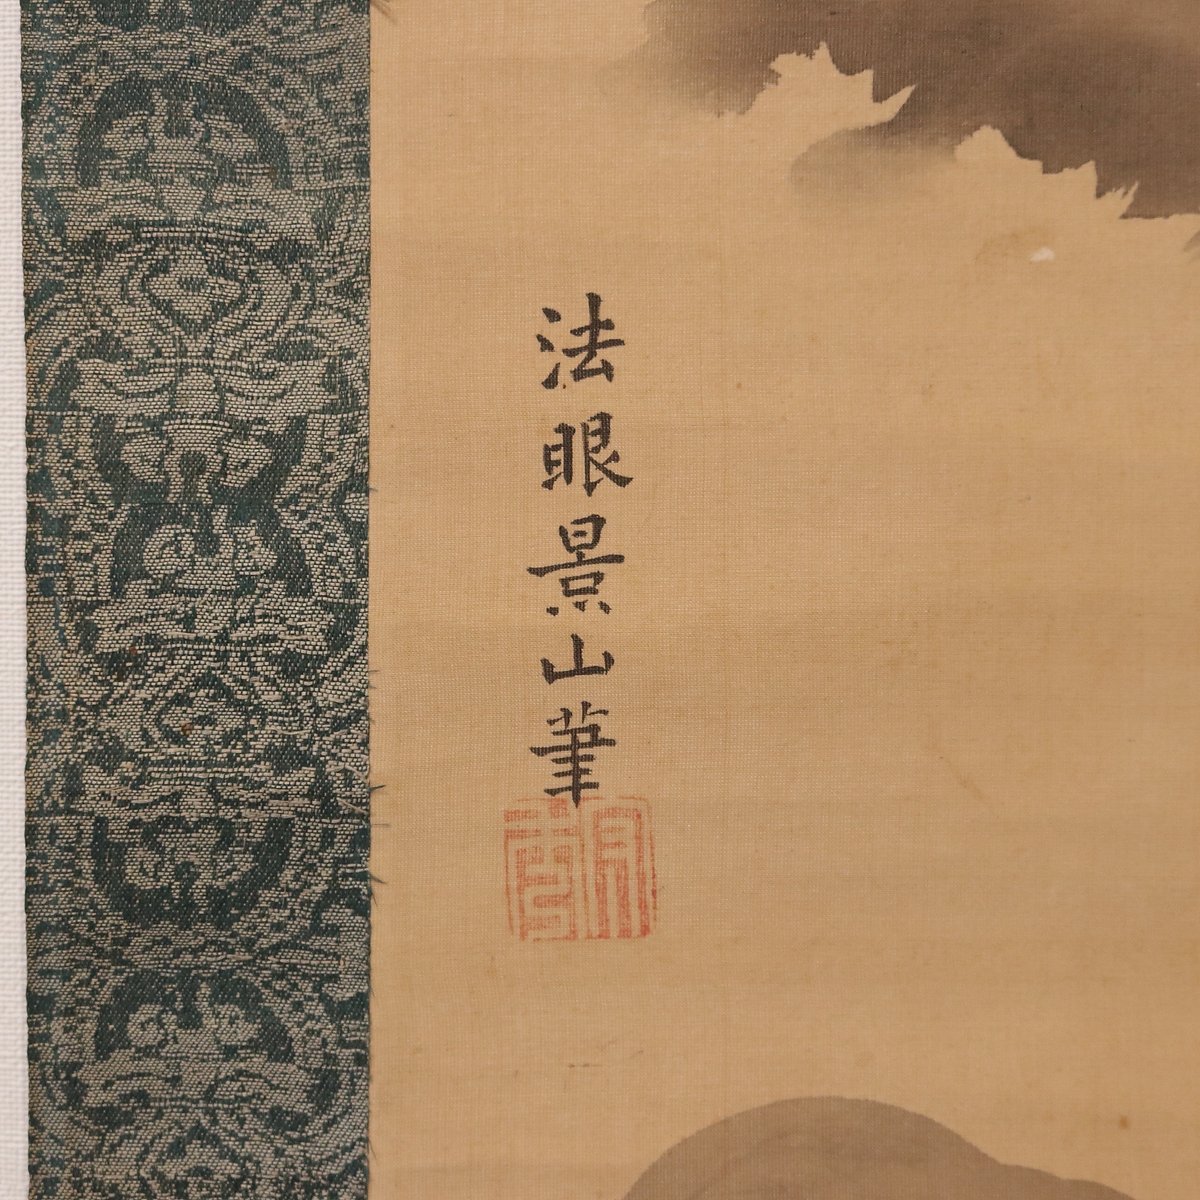 法眼景山筆